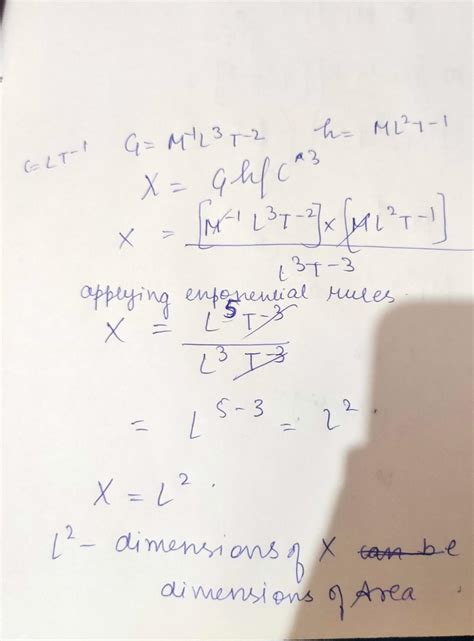 C=LT-1 G= M-1L3T-2 h= ML2T-1
X = Gh/C^3
X = [M-1 L3T-2]x[ML2T-1]
L3T-3
applying exponential rules.
X = L5 T-3
L3 T-3
= L5-3 = L2.
X = L2.
L2- dimensions of X can be
dimensions of Area